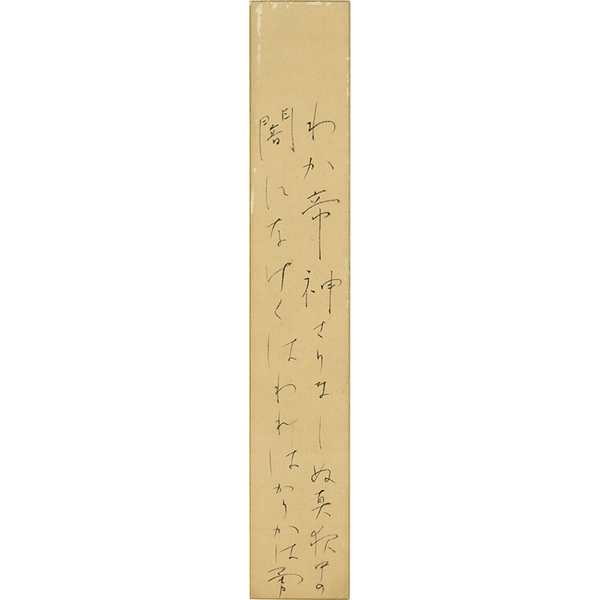 わか帝神さりましぬ真夜中の
闇になけくはわれはかりかは